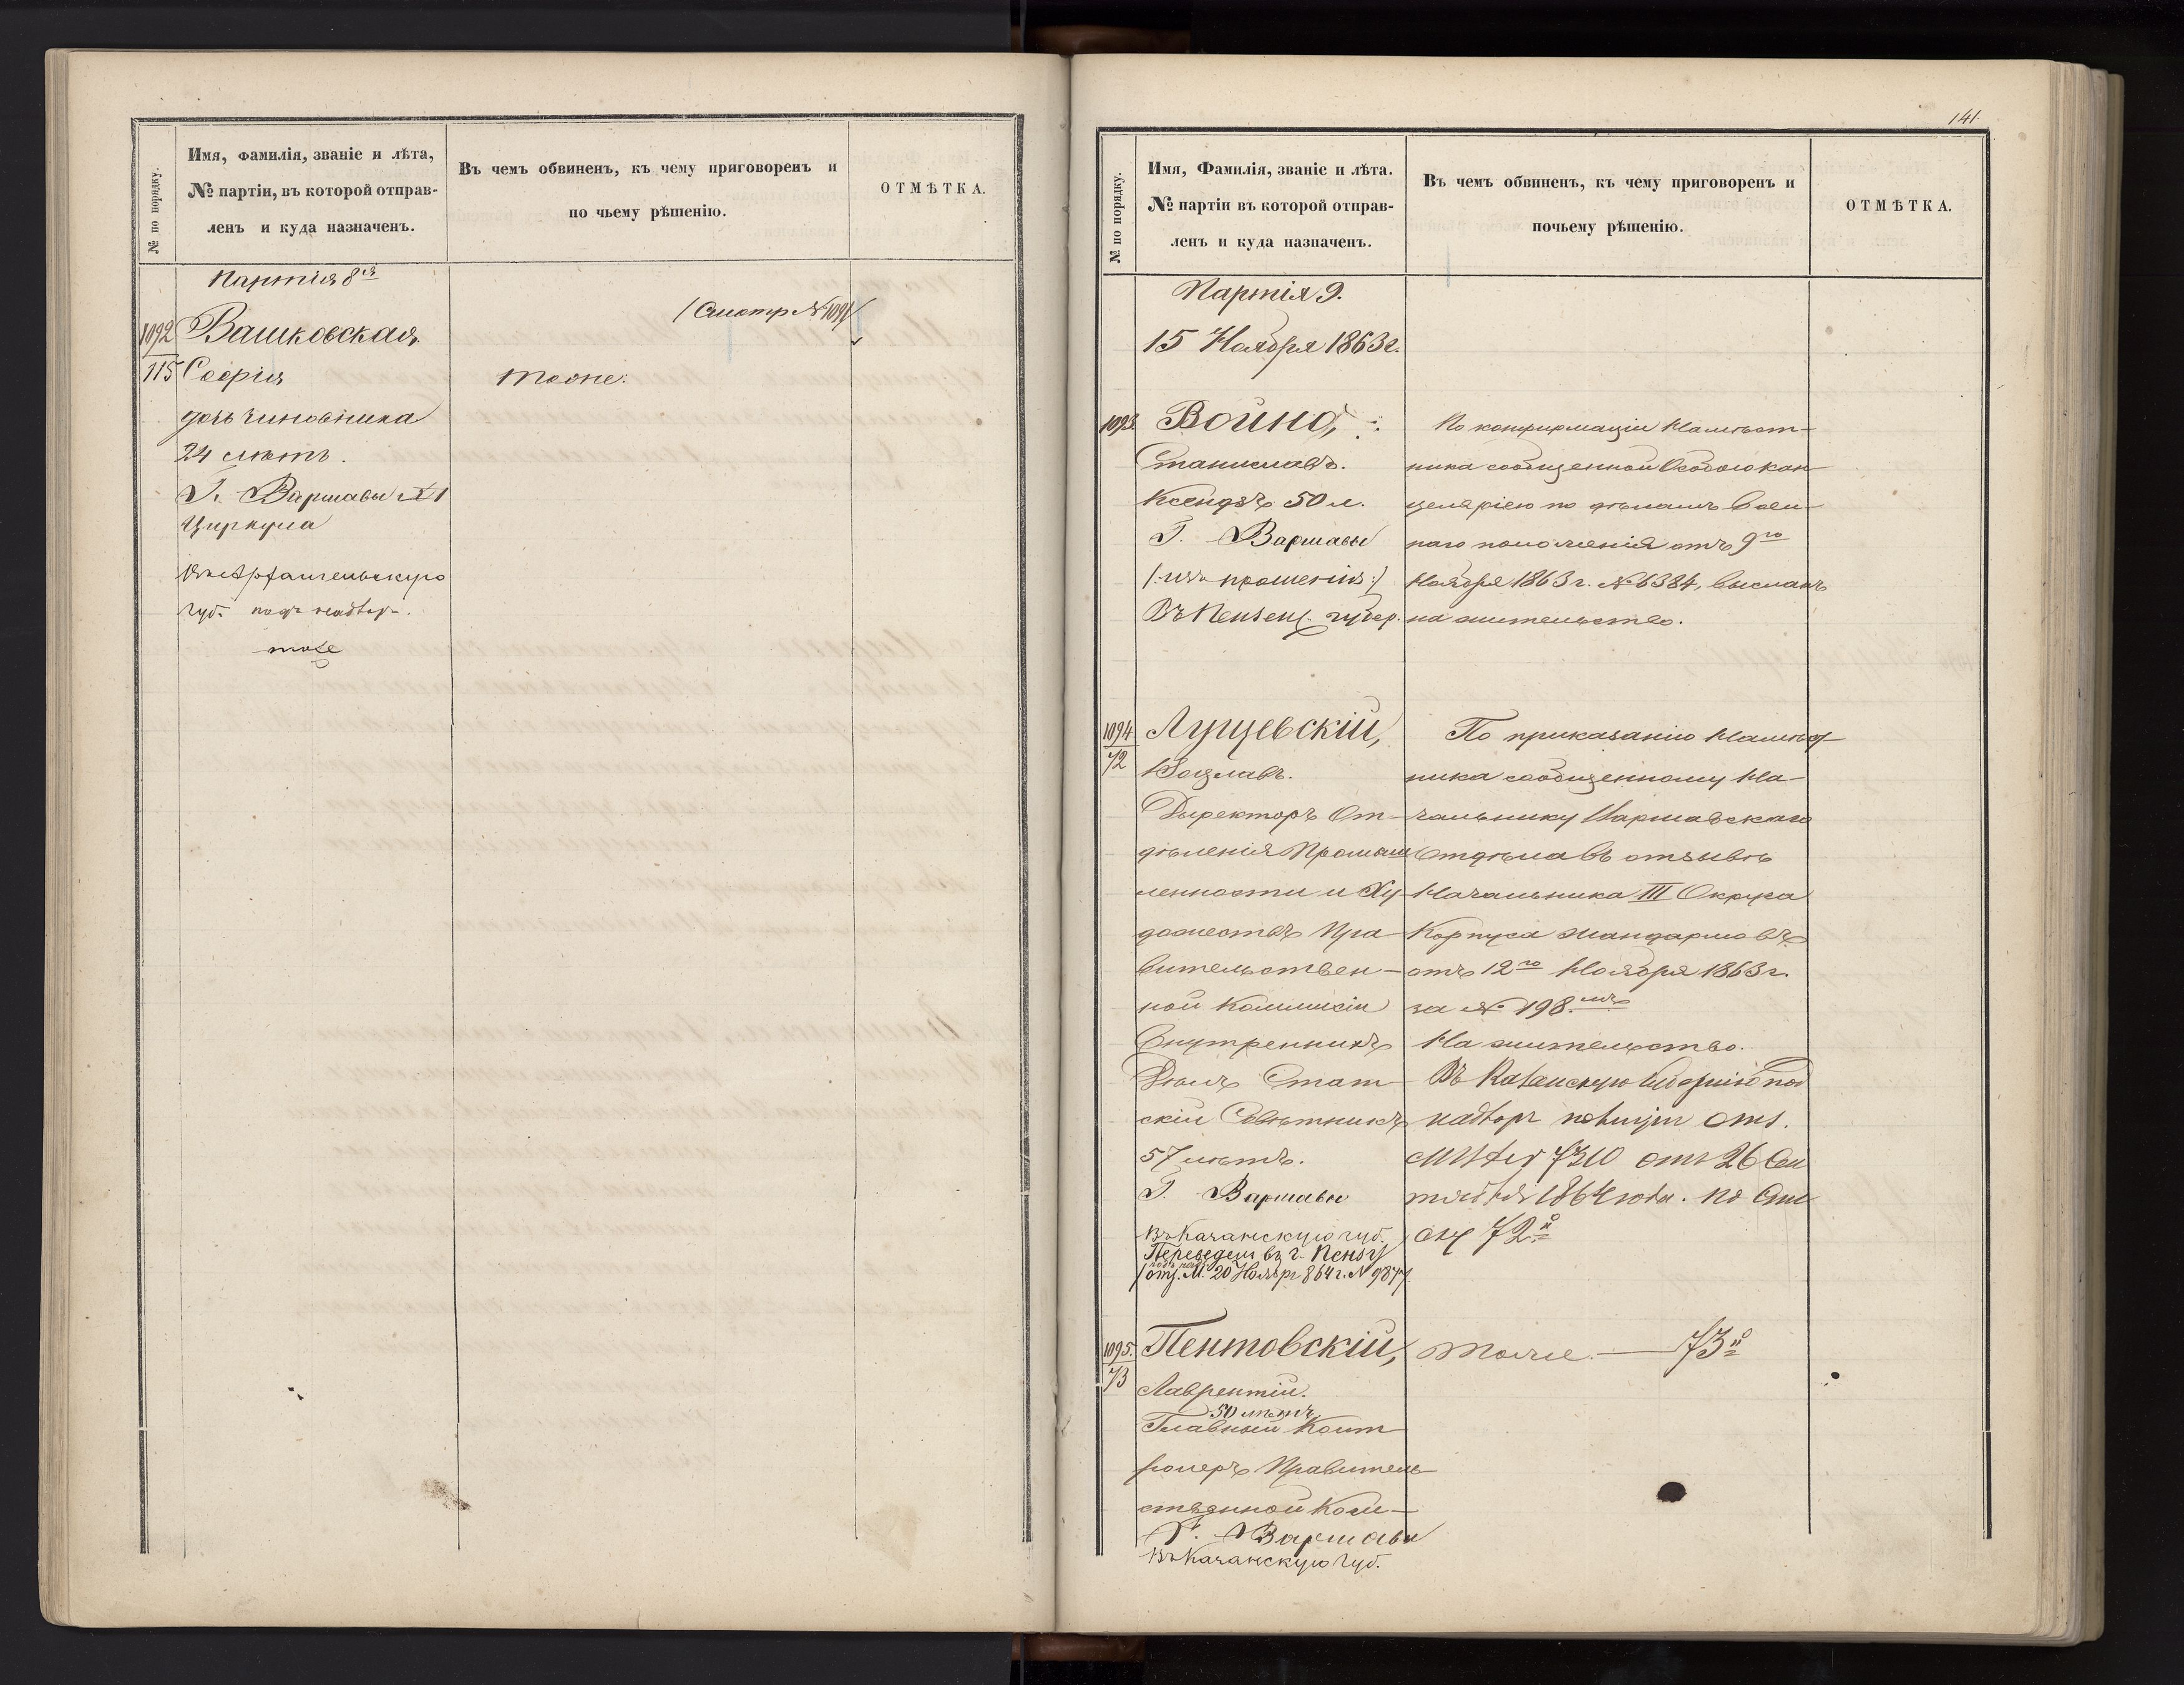 № по порядку.
Имя, Фамилія, званіе и лѣта,
№ партіи, въ которой отправ-
ленъ и куда назначенъ.
Въ чемъ обвиненъ, къ чему приговоренъ и
по чьему рѣшенію.
ОТМѢТКА.
Партія 8ая
(Смотр № 1091)
1092 Вашковская,
115 Софія
тоже.
дочь чиновника
24 лѣтъ.
Г. Варшавы № 1
Циркула
губ. подъ надзор.
тоже
141.
№ по порядку.
Имя, Фамилія, званіе и лѣта.
№ партіи въ которой отправ-
ленъ и куда назначенъ.
Въ чемъ обвиненъ, къ чему приговоренъ и
почьему рѣшенію.
ОТМѢТКА.
Партія 9.
15 Ноября 1863 г.
1093. Война,
Станиславъ.
Ксендзъ 50 л.
Г. Варшавы
/:изъ прошенія:/
Въ Пензен. губер.
По конфирмаціи Намѣст-
ника сообщенной Особою кан-
целяріею по дѣламъ Воен-
наго положенія отъ 9го
Ноября 1863 г. № 6384, высланъ
на жительство.
1094
72
Лущевскій,
Вацлавъ.
Директоръ От-
дѣленія Промыш
ленности и Ху-
дожествъ Пра-
вительствен-
ной Коммисіи
Внутреннихъ
Дѣлъ Стат-
скій Совѣтникъ
57 лѣтъ.
Г. Варшавы
Въ Казанскую губ.
Переведенъ въ г. Пензу
подъ надз.
/отз. М. 20 Ноября 864 г. № 9877
По приказанію Намѣст-
ника сообщенному На-
чальнику Варшавскаго
Отдѣла въ отзывѣ
Начальника III Округа
Корпуса Жандармовъ
отъ 12го Ноября 1863 г.
за № 198.мъ
На жительство.
Въ Казанскую Губернію под
надзоръ полиціи отз.
7310 отъ 26 Сен
тября 1864 года. по
72й
1095.
73
Пентовскій,
Лаврентій.
50 лѣтъ.
Главный Конт-
ролеръ Правитель-
ственной Ком-
Г. Варшавы
Въ Казанскую губ.
Тоже. — 73й